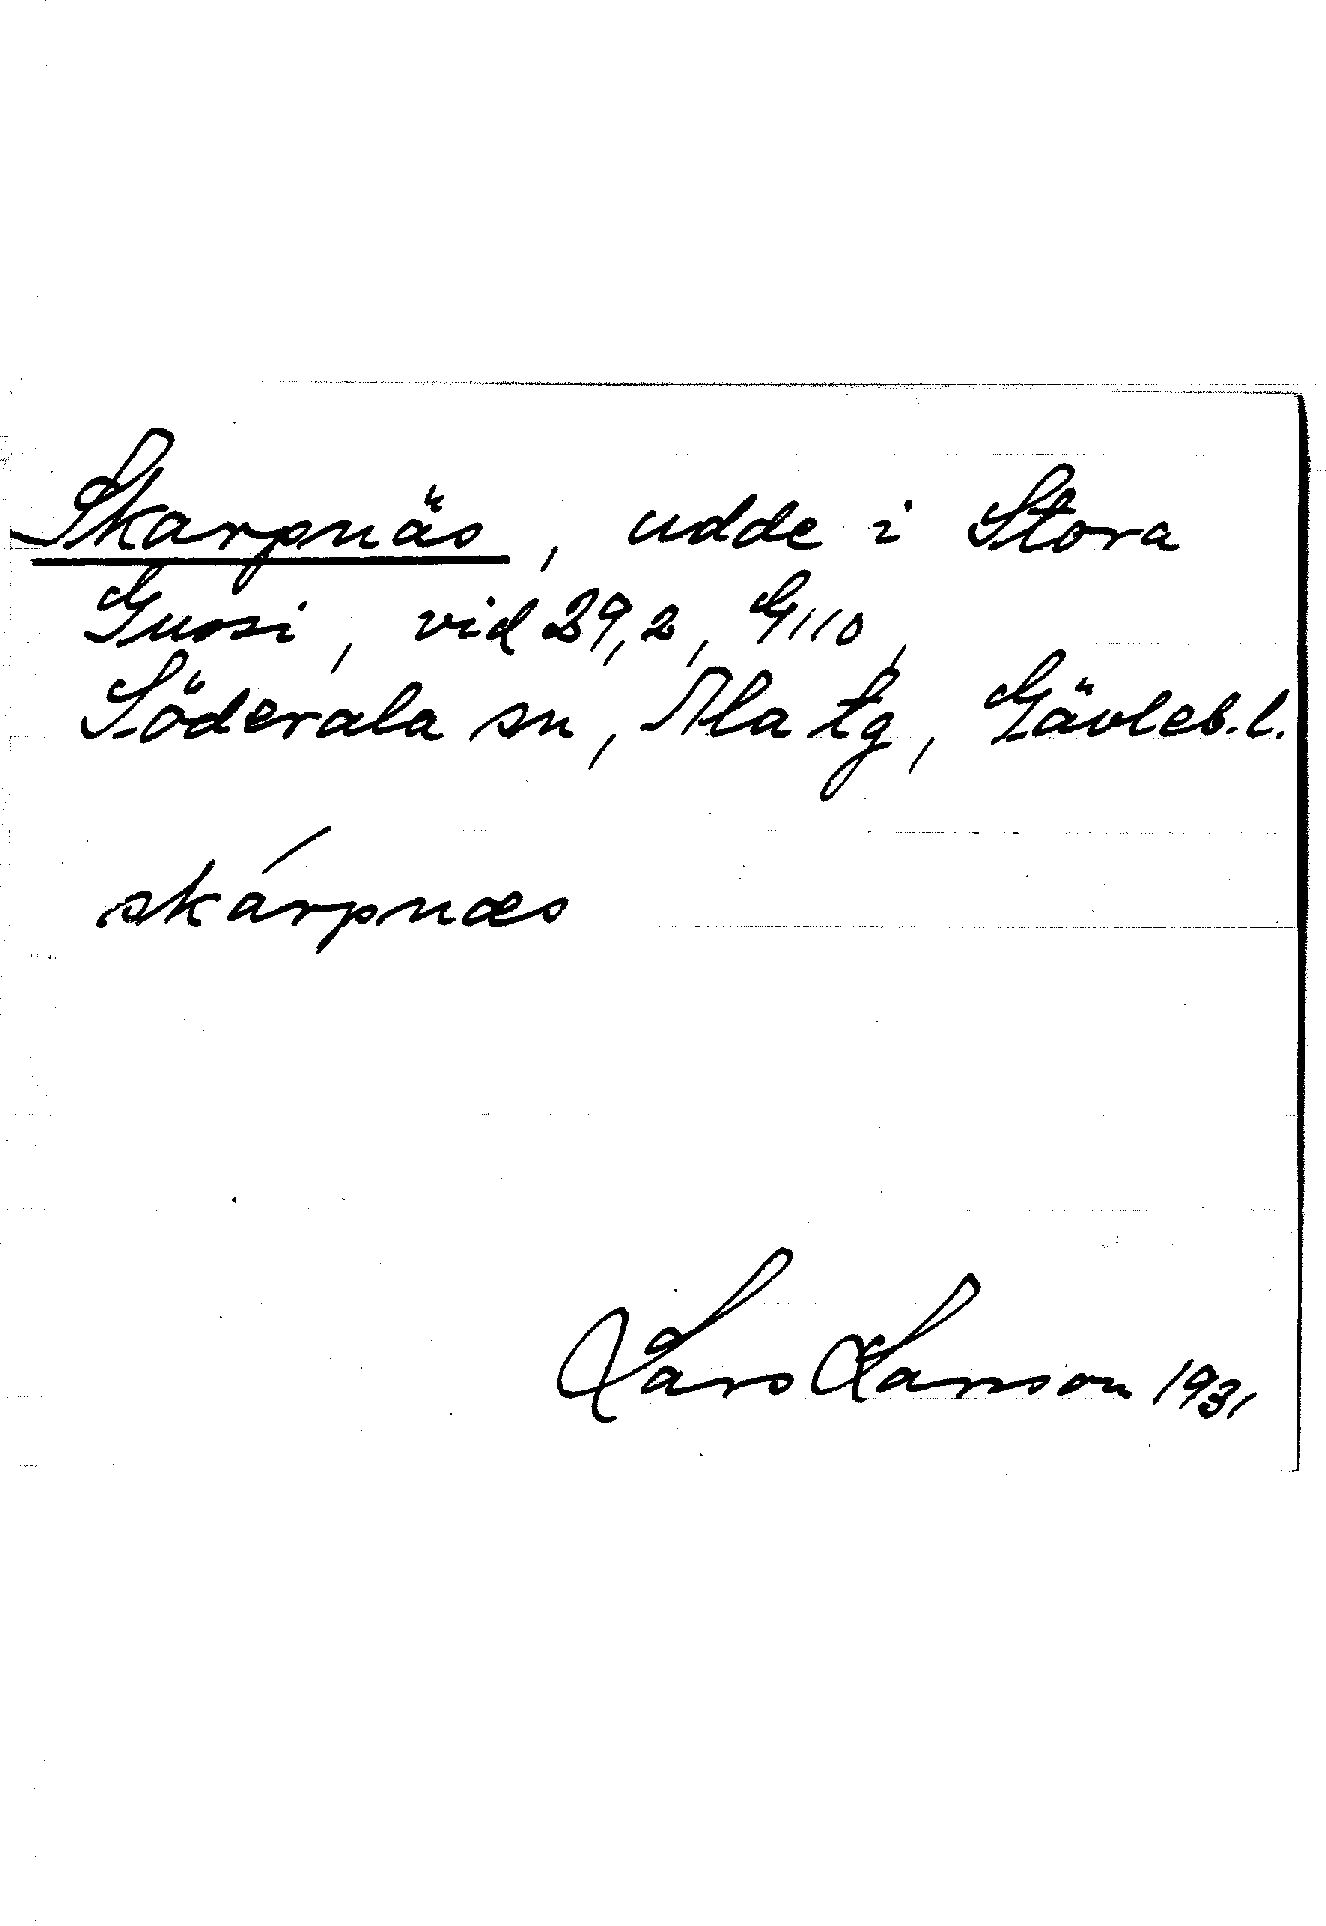 Skarpnäs, udde i Stora
Gussi, vid 29,2, G110,
Söderala sn, Ala tg, Gävleb. l.
skárpnæs
Lars Larsson 1931